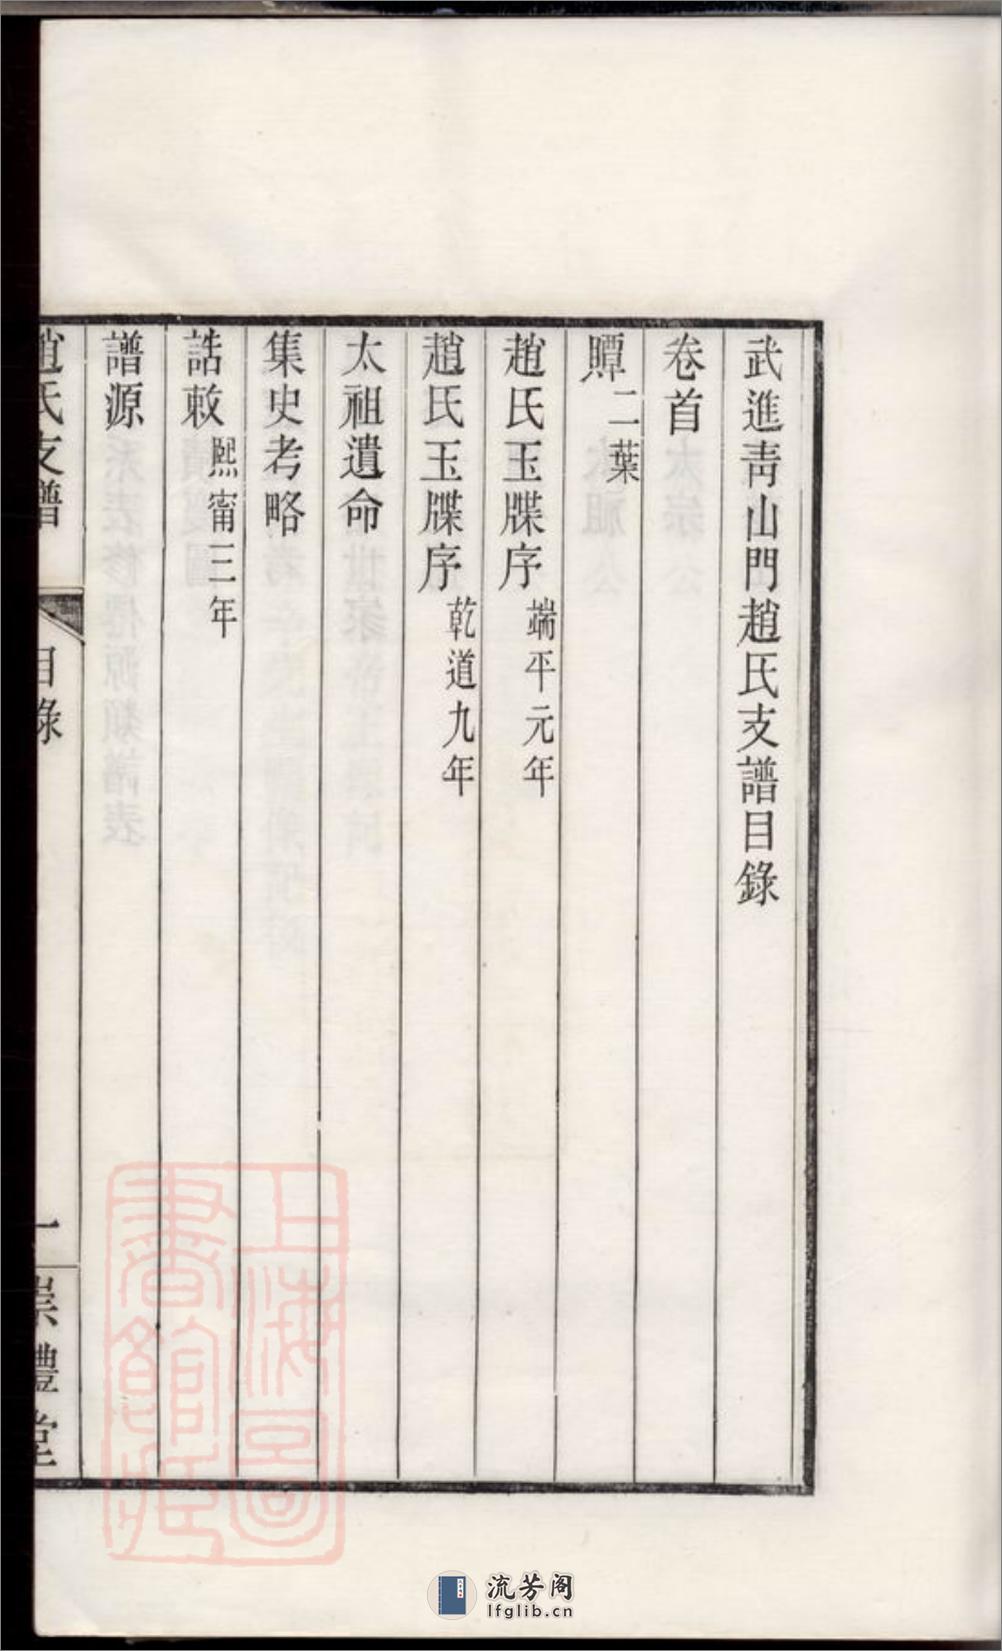 武進青山門趙氏支譜目錄
卷首
贉二葉
趙氏玉牒序端平元年
趙氏玉牒序乾道九年
太祖遺命
集史考略
誥敕熙甯三年
譜源
趙氏支譜
目錄
一
崇禮堂
上海圖書館藏
流芳阁
lfglib.cn